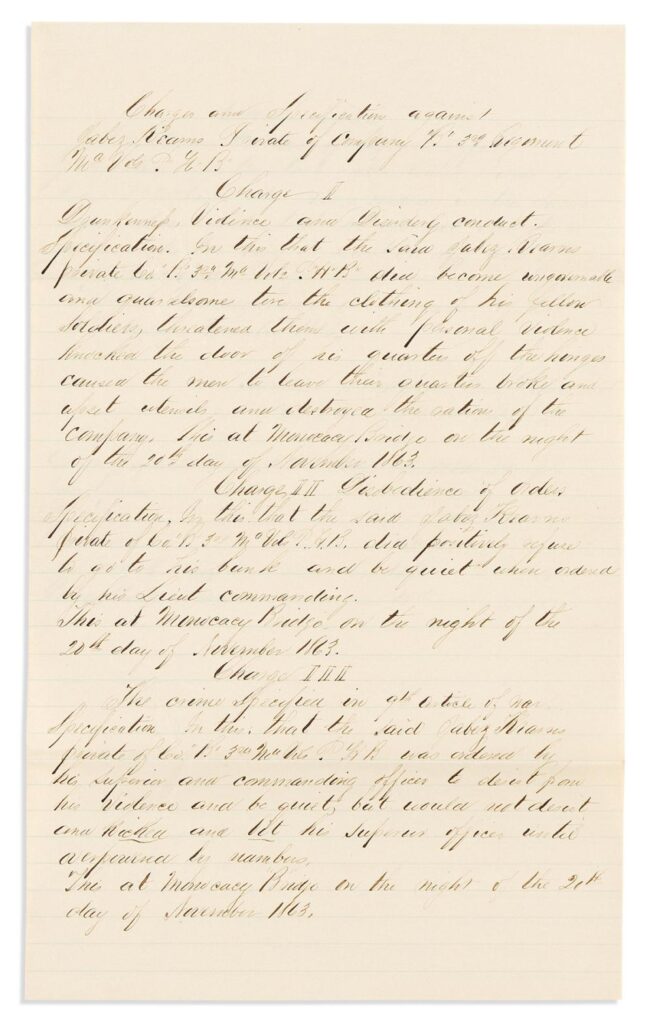 Charges and Specification against
Jabez Kearns Private of Company B 3rd Regiment
Md Vols P. H. B
Charge I
Drunkenness, Violence and Disorderly conduct.
Specification. In this that the said Jabez Kearns
private Co B. 3rd Md Vols P. H. B did become ungovernable
and quarelsome tore the clothing of his fellow
Soldiers, threatened them with personal violence
knocked the door of his quarters off the hinges
caused the men to leave their quarters broke and
upset utensils and destroyed the rations of the
company. This at Monocacy Bridge on the night
of the 20th day of November 1863.
Charge II Disobedience of orders
Specification, In this that the said Jabez Kearns
private of Co B 3rd Md Vols P. H. B. did positively refuse
to go to his bunk and be quiet when ordered
by his Lieut commanding.
This at Monocacy Bridge on the night of the
20th day of November 1863.
Charge III
The crime specified in 9th article of war
Specification In this. that the said Jabez Kearns
private of Co. B. 3rd Md Vols P. H. B was ordered by
his superior and commanding officer to desist from
his violence and be quiet, but would not desist
and kicked and bit his Superior officer until
overpowered by numbers.
This at Monocacy Bridge on the night of the 20th
day of November 1863.